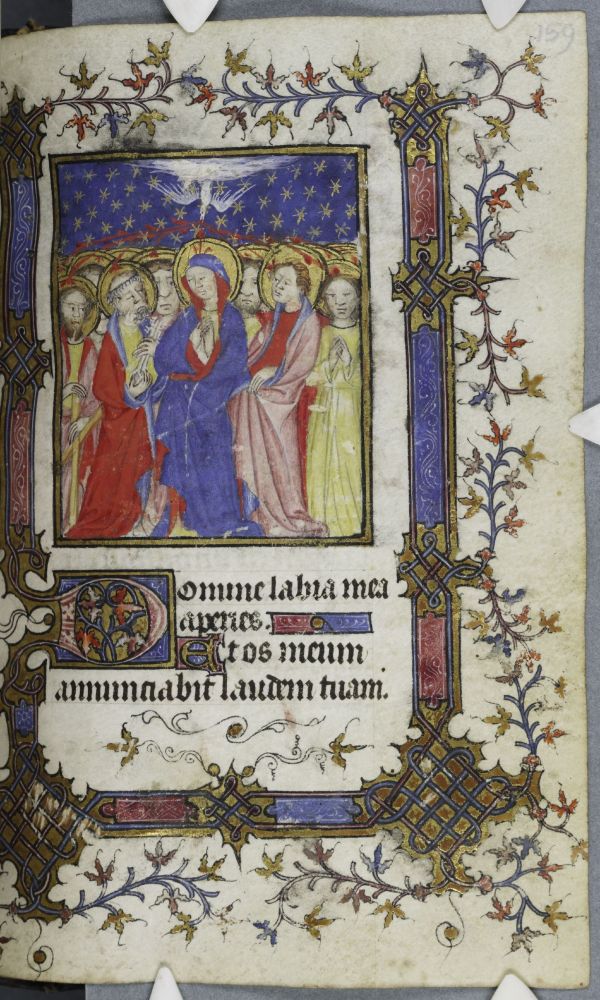 159
Domine labia mea
aperies.
Et os meum
annunciabit laudem tuam.